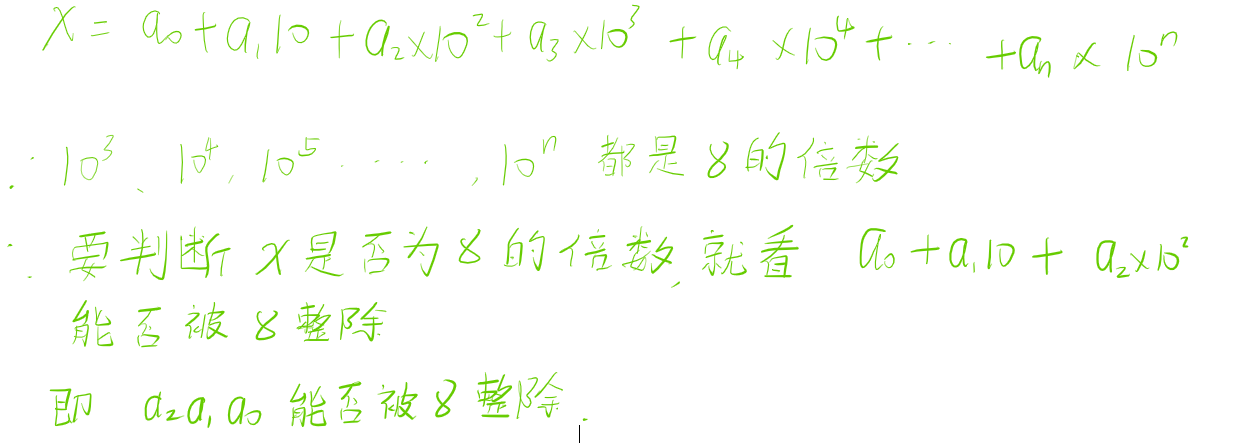 x = a₀+a₁10+a₂×10²+a₃×10³+a₄×10⁴+⋯+aₙ×10ⁿ
∵10³、10⁴,10⁵⋯⋯,10ⁿ都是8的倍数
∴要判断x是否为8的倍数,就看 a₀+a₁10+a₂×10²
能否被8整除
即 a₂a₁a₀能否被8整除.